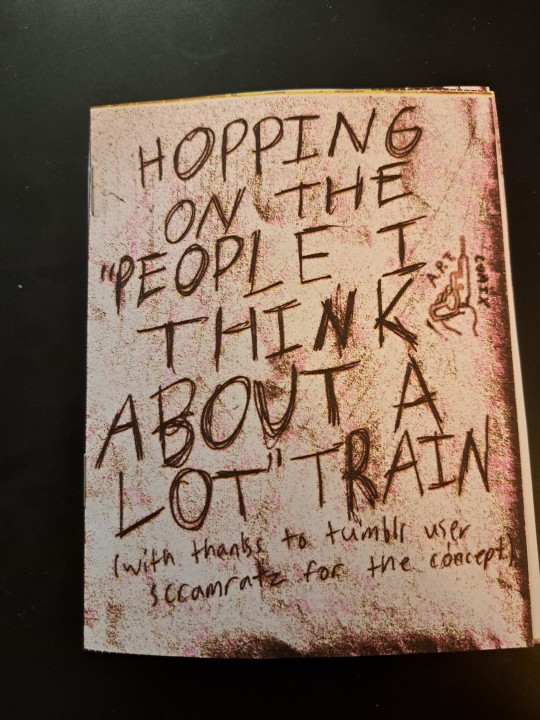 HOPPING
ON THE
"PEOPLE I
THINK
ABOUT A
LOT" TRAIN
(with thanks to tumblr user
scramratz for the concept)
A.R.I
COMIX